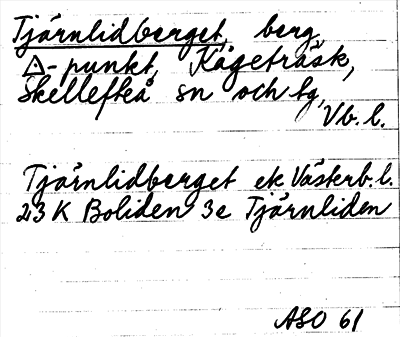 Tjärnlidberget, berg,
△-punkt, Kågeträsk,
Skellefteå sn och tg,
Vb. l.
Tjärnlidberget ek Västerb. l.
23 K Boliden 3e Tjärnliden
ASO 61